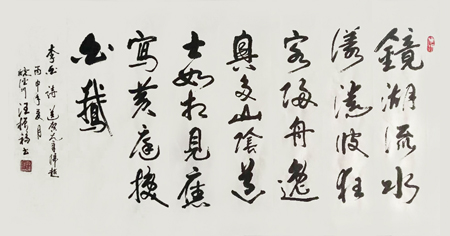 鏡湖流水
漾清波狂
客歸舟逸
興多山陰道
士如相見應
寫黃庭換
白鵝
李白詩 送賀歸越
丙申年夏月
汪振福書